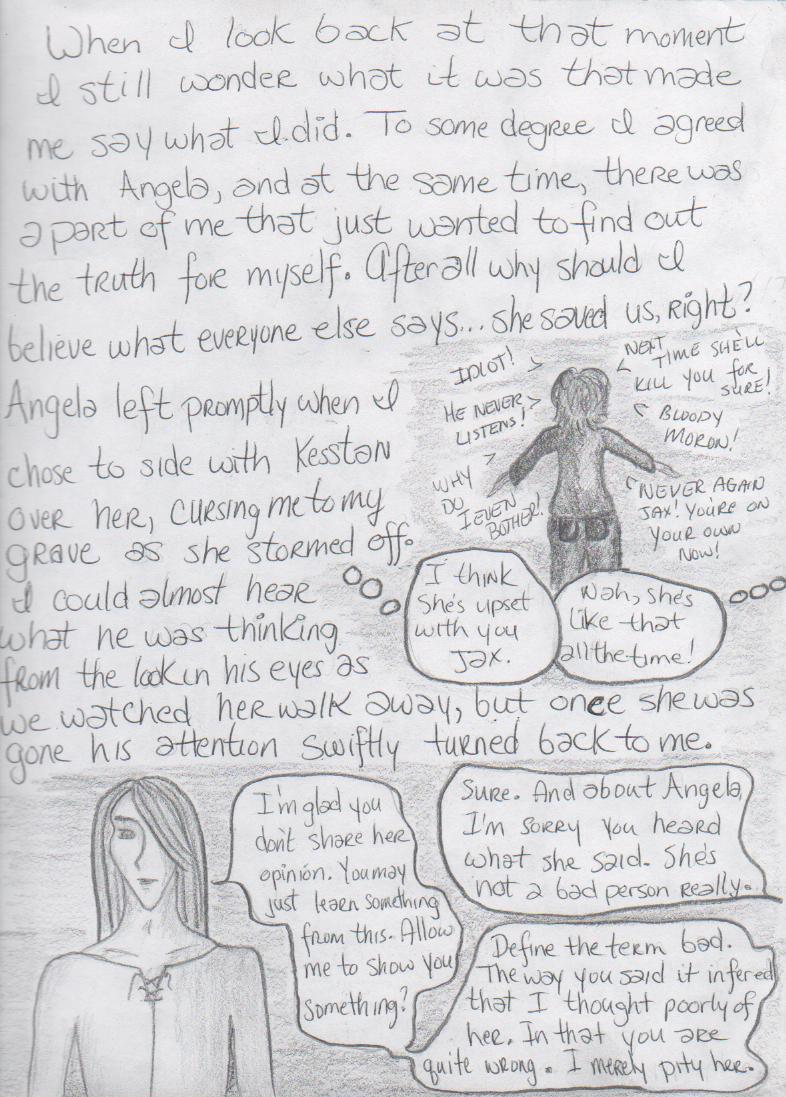 When I look back at that moment
I still wonder what it was that made
me say what I did. To some degree I agreed
with Angela, and at the same time, there was
a part of me that just wanted to find out
the truth for myself. After all why should I
believe what everyone else says... she saved us, right?
Angela left promptly when I
chose to side with Kesston
over her, cursing me to my
grave as she stormed off.
I could almost hear
what he was thinking
from the look in his eyes as
we watched her walk away, but once she was
gone his attention swiftly turned back to me.
IDIOT!
HE NEVER
LISTENS!
WHY
DO
I EVEN
BOTHER!
NEXT
TIME SHE'LL
KILL YOU FOR
SURE!
BLOODY
MORON!
NEVER AGAIN
JAX! YOU'RE ON
YOUR OWN
NOW!
I think
She's upset
with you
Jax.
Nah, she's
like that
all the time!
I'm glad you
don't share her
opinion. You may
just learn something
from this. Allow
me to show you
something?
Sure. And about Angela,
I'm sorry you heard
what she said. She's
not a bad person really.
Define the term bad.
The way you said it infered
that I thought poorly of
her. In that you are
quite wrong. I merely pity her.